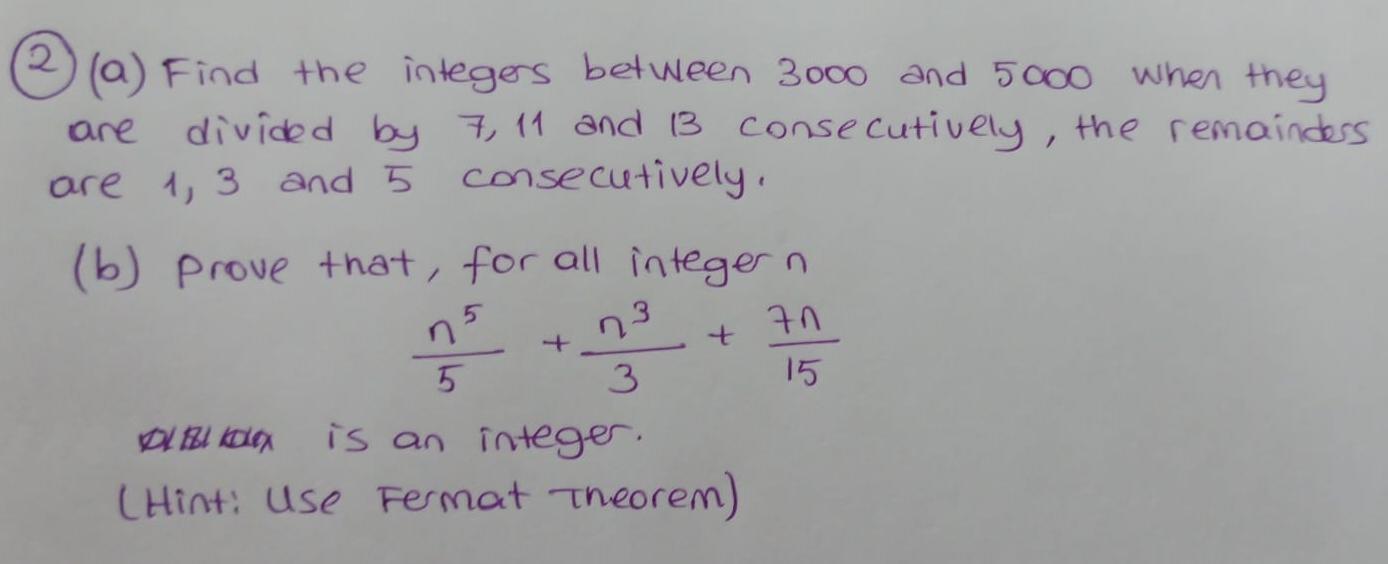 2 (a) Find the integers between 3000 and 5000 when they
are divided by 7, 11 and 13 consecutively, the remainders
are 1, 3 and 5 consecutively.
(b) prove that, for all integer n
n^5/5 + n^3/3 + 7n/15
is an integer.
(Hint: Use Fermat Theorem)